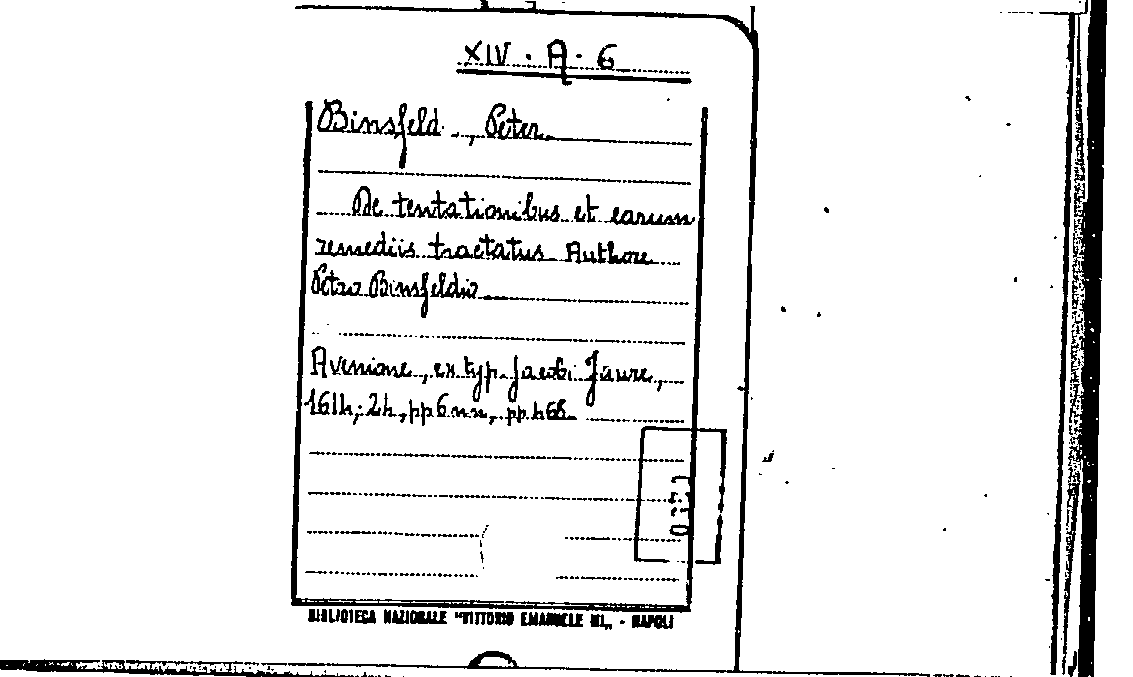 XIV · A · 6
Binsfeld, Peter
De tentationibus et earum
remediis tractatus Authore
Petro Binsfeldio
Avenione, ex typ. Jacobi Faure,
1614; 24, pp 6 nn, pp. 468
BIBLIOTECA NAZIONALE "VITTORIO EMANUELE III" - NAPOLI